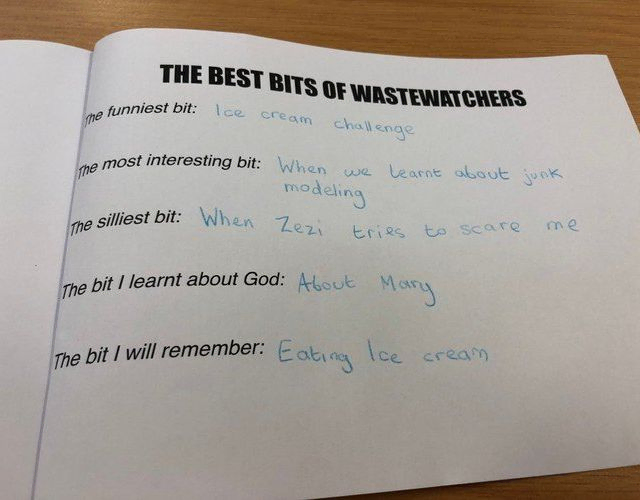 THE BEST BITS OF WASTEWATCHERS
The funniest bit: Ice cream challenge
The most interesting bit: When we learnt about junk
modeling
The silliest bit: When Zezi tries to scare me
The bit I learnt about God: About Mary
The bit I will remember: Eating Ice cream